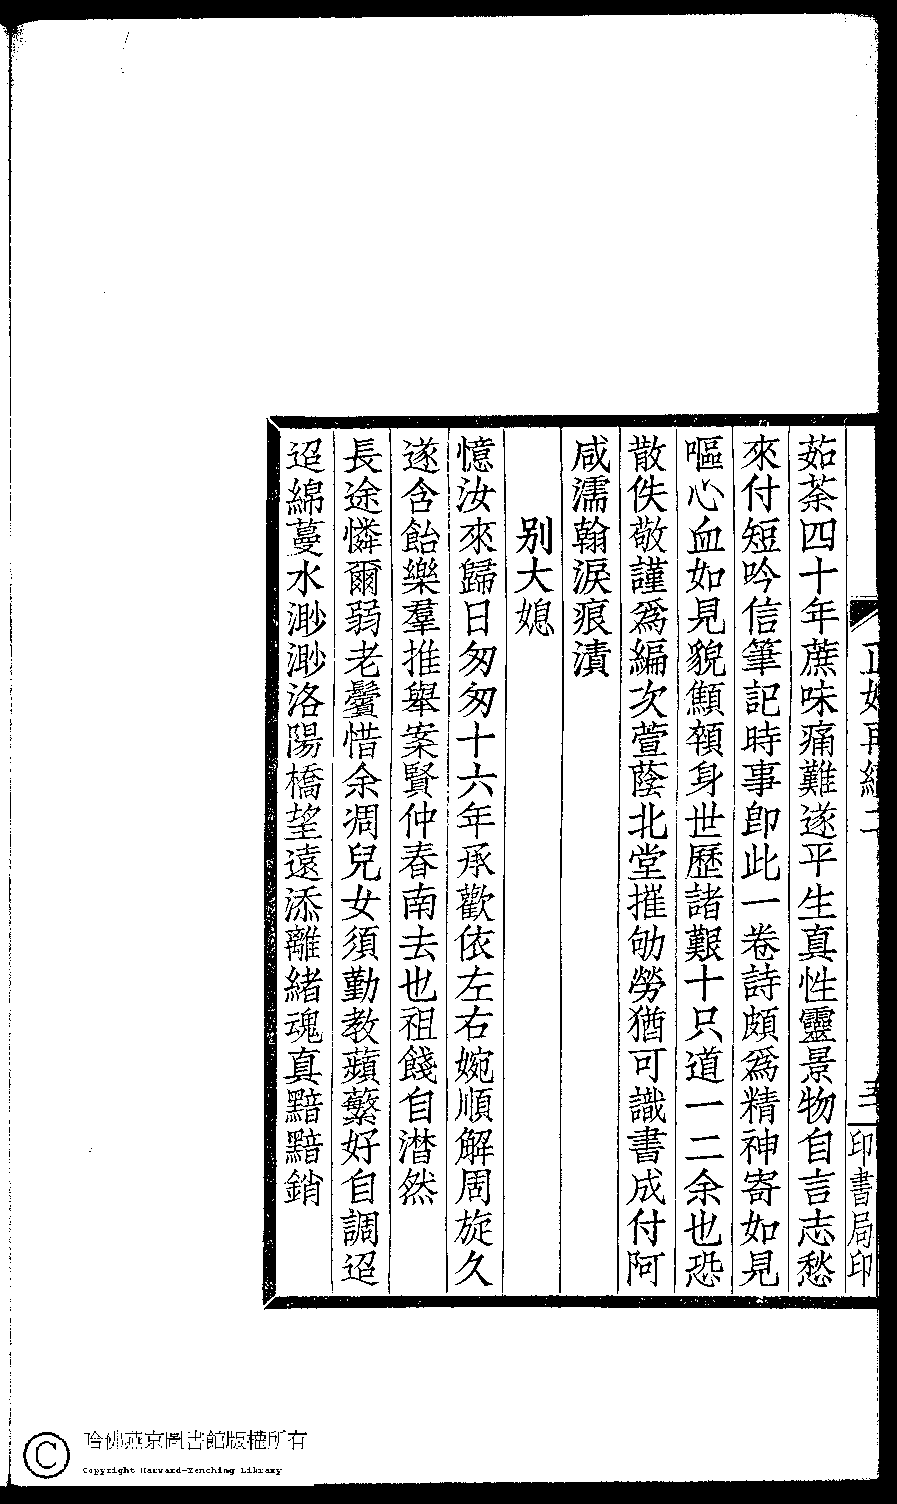 茹荼四十年蔗味痛難遂平生真性靈景物自言志愁
來付短吟信筆記時事即此一卷詩頗爲精神寄如見
嘔心血如見貌顦顇身世歷諸艱十只道一二余也恐
散佚敬謹爲編次萱蔭北堂摧劬勞猶可識書成付阿
咸濡翰淚痕漬
別大媳
憶汝來歸日匆匆十六年承歡依左右婉順解周旋久
遂含飴樂羣推舉案賢仲春南去也祖餞自潸然
長途憐爾弱老鬢惜余凋兒女須勤教蘋蘩好自調迢
迢綿蔓水渺渺洛陽橋望遠添離緒魂真黯黯銷
印書局印
哈佛燕京圖書館版權所有
Copyright Harvard-Yenching Library